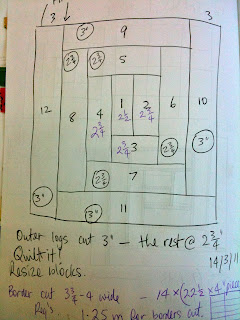 3 3
3" 9
2 3/4 5
12 8 4 1 2 6 10
2 3/4 2 1/2 2 3/4
2 3/4 3 2 3/4 3"
2 3/4 7
3" 3" 11
Outer logs cut 3" – the rest @ 2 3/4"
Quilt it!
Resize blocks. 14/3/11
Border cut 3 3/4 - 4 wide – 14 × (22 1/2 × 4" piece
1.25 m for borders cut.